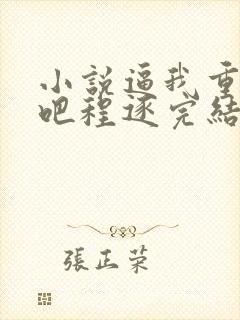 小說逼我重
吧程逐完結
張正榮